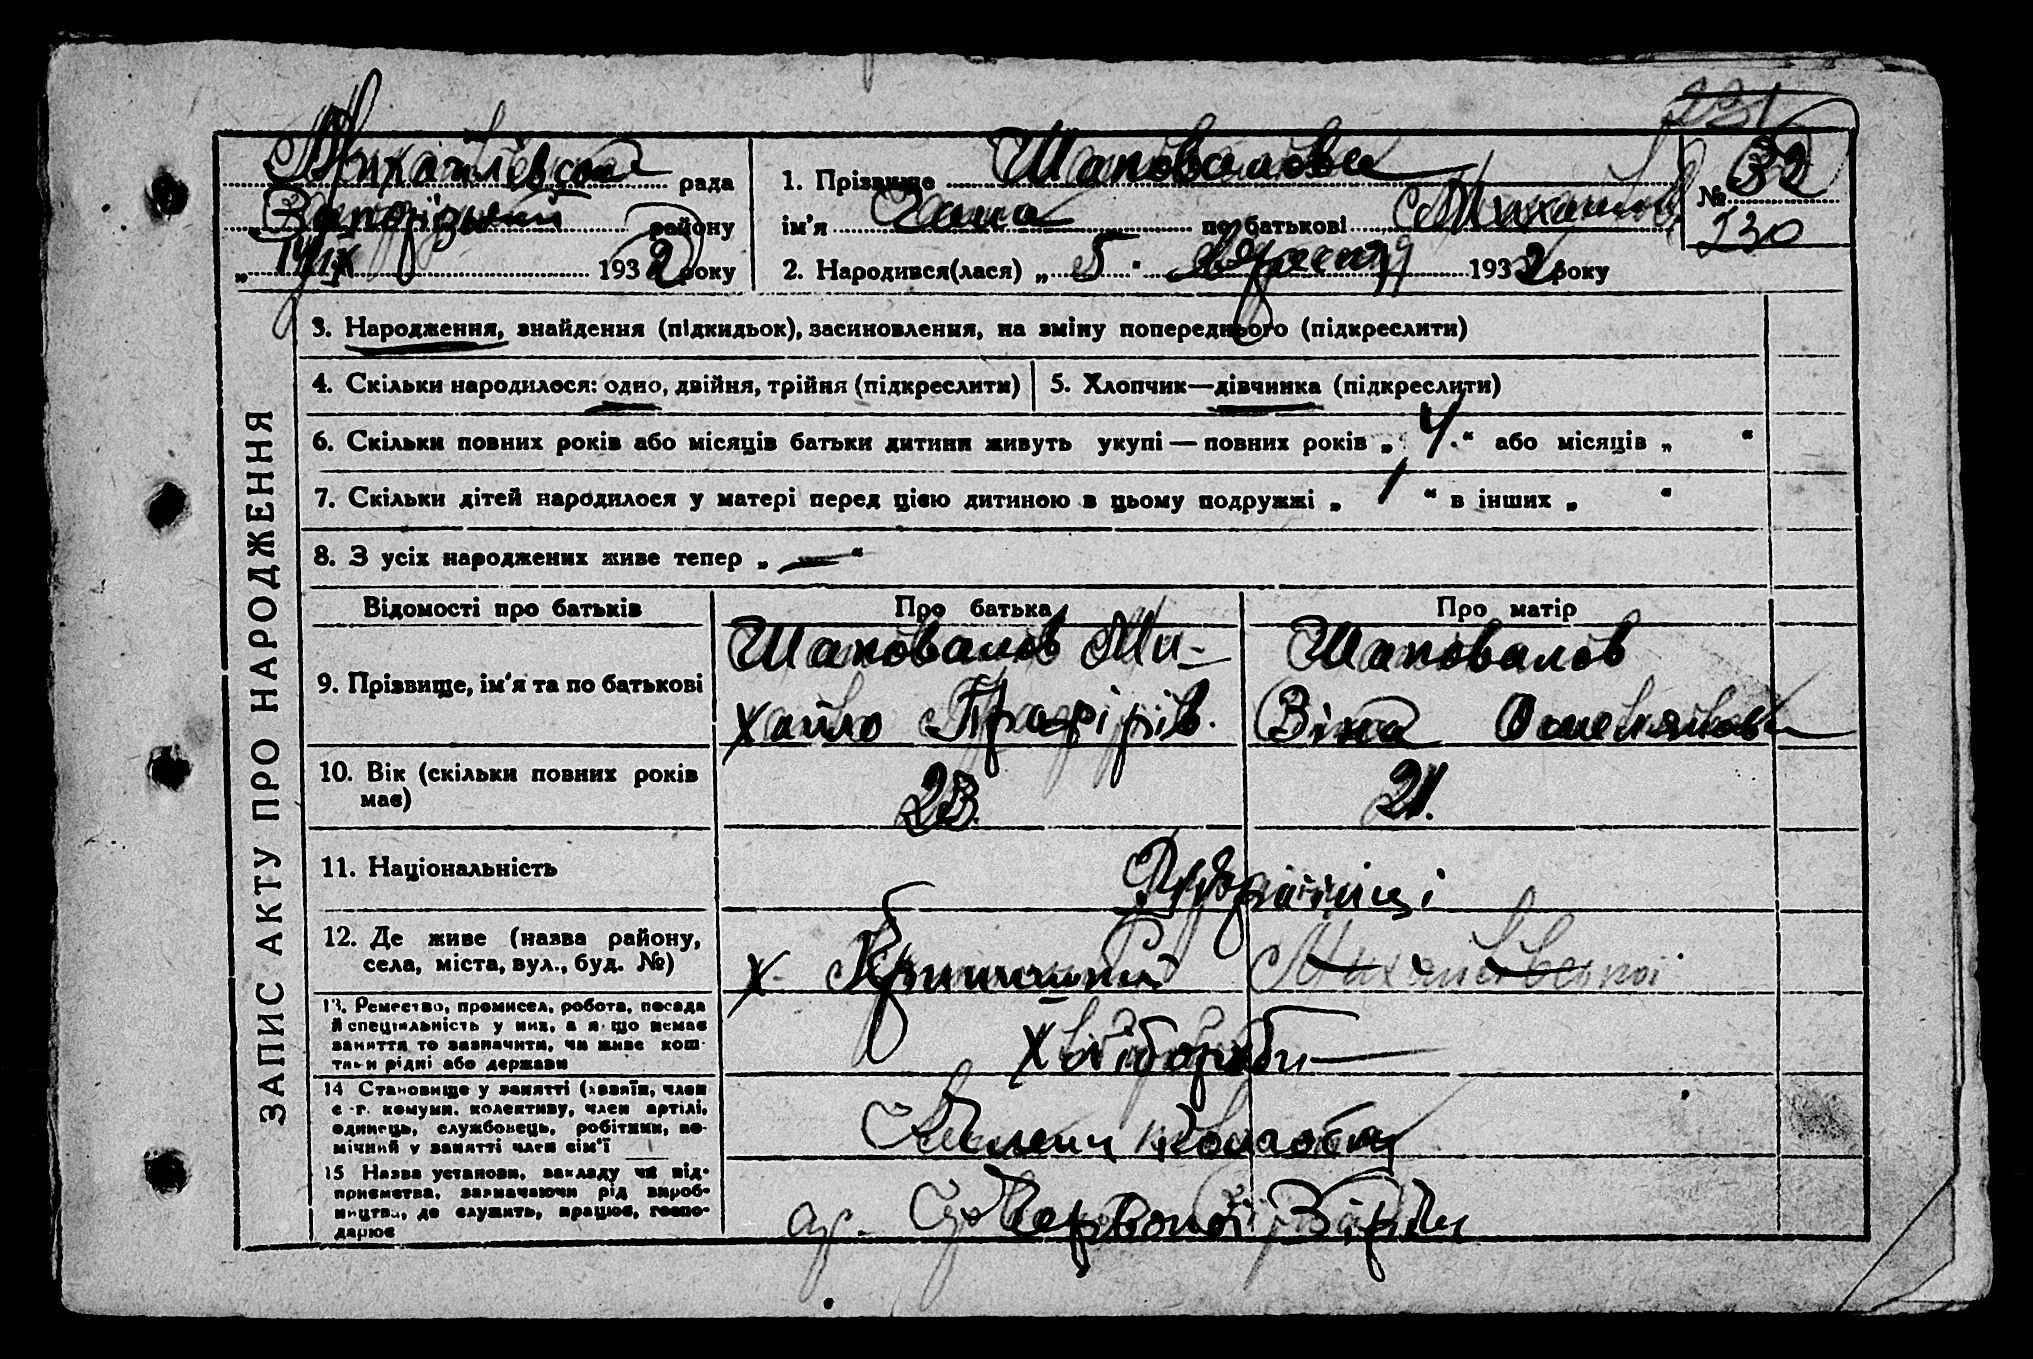 231
Михайлівська рада
Запорізький району
„ 14/IX 1932 року
1. Прізвище Шаповалова
ім'я по батькові Михайлів
№ 32
230
2. Народився(лася) „ 5 " вересня 1932 року
ЗАПИС АКТУ ПРО НАРОДЖЕННЯ
3. Народження, знайдення (підкидьок), засиновлення, на зміну попереднього (підкреслити)
4. Скільки народилося: одно, двійня, трійня (підкреслити)
5. Хлопчик—дівчинка (підкреслити)
6. Скільки повних років або місяців батьки дитини живуть укупі — повних років „ 4 “ або місяців „ “
7. Скільки дітей народилося у матері перед цією дитиною в цьому подружжі „ 1 “ в інших „ “
8. З усіх народжених живе тепер „ — “
Відомості про батьків
Про батька
Про матір
9. Прізвище, ім'я та по батькові
Шаповалов Ми-
хайло
Шаповалов
Омелянов
10. Вік (скільки повних років
має)
23
21
11. Національність
Українці
12. Де живе (назва району,
села, міста, вул., буд. №)
х. Михайлівської
13. Ремество, промисел, робота, посада
й спеціяльність у них, а якщо немає
заняття то зазначити, чи живе кош-
тами рідні або держави
Хлібороби
14 Становище у занятті (хазяїн, член
с.-г. комуни, колективу, член артілі,
одинець, службовець, робітник, по-
мічний у занятті член сім'ї
Члени колгоспу
15 Назва установи, закладу чи під-
приємства, зазначаючи рід вироб-
ництва, де служить, працює, госпо-
дарює
Червоної Зірки